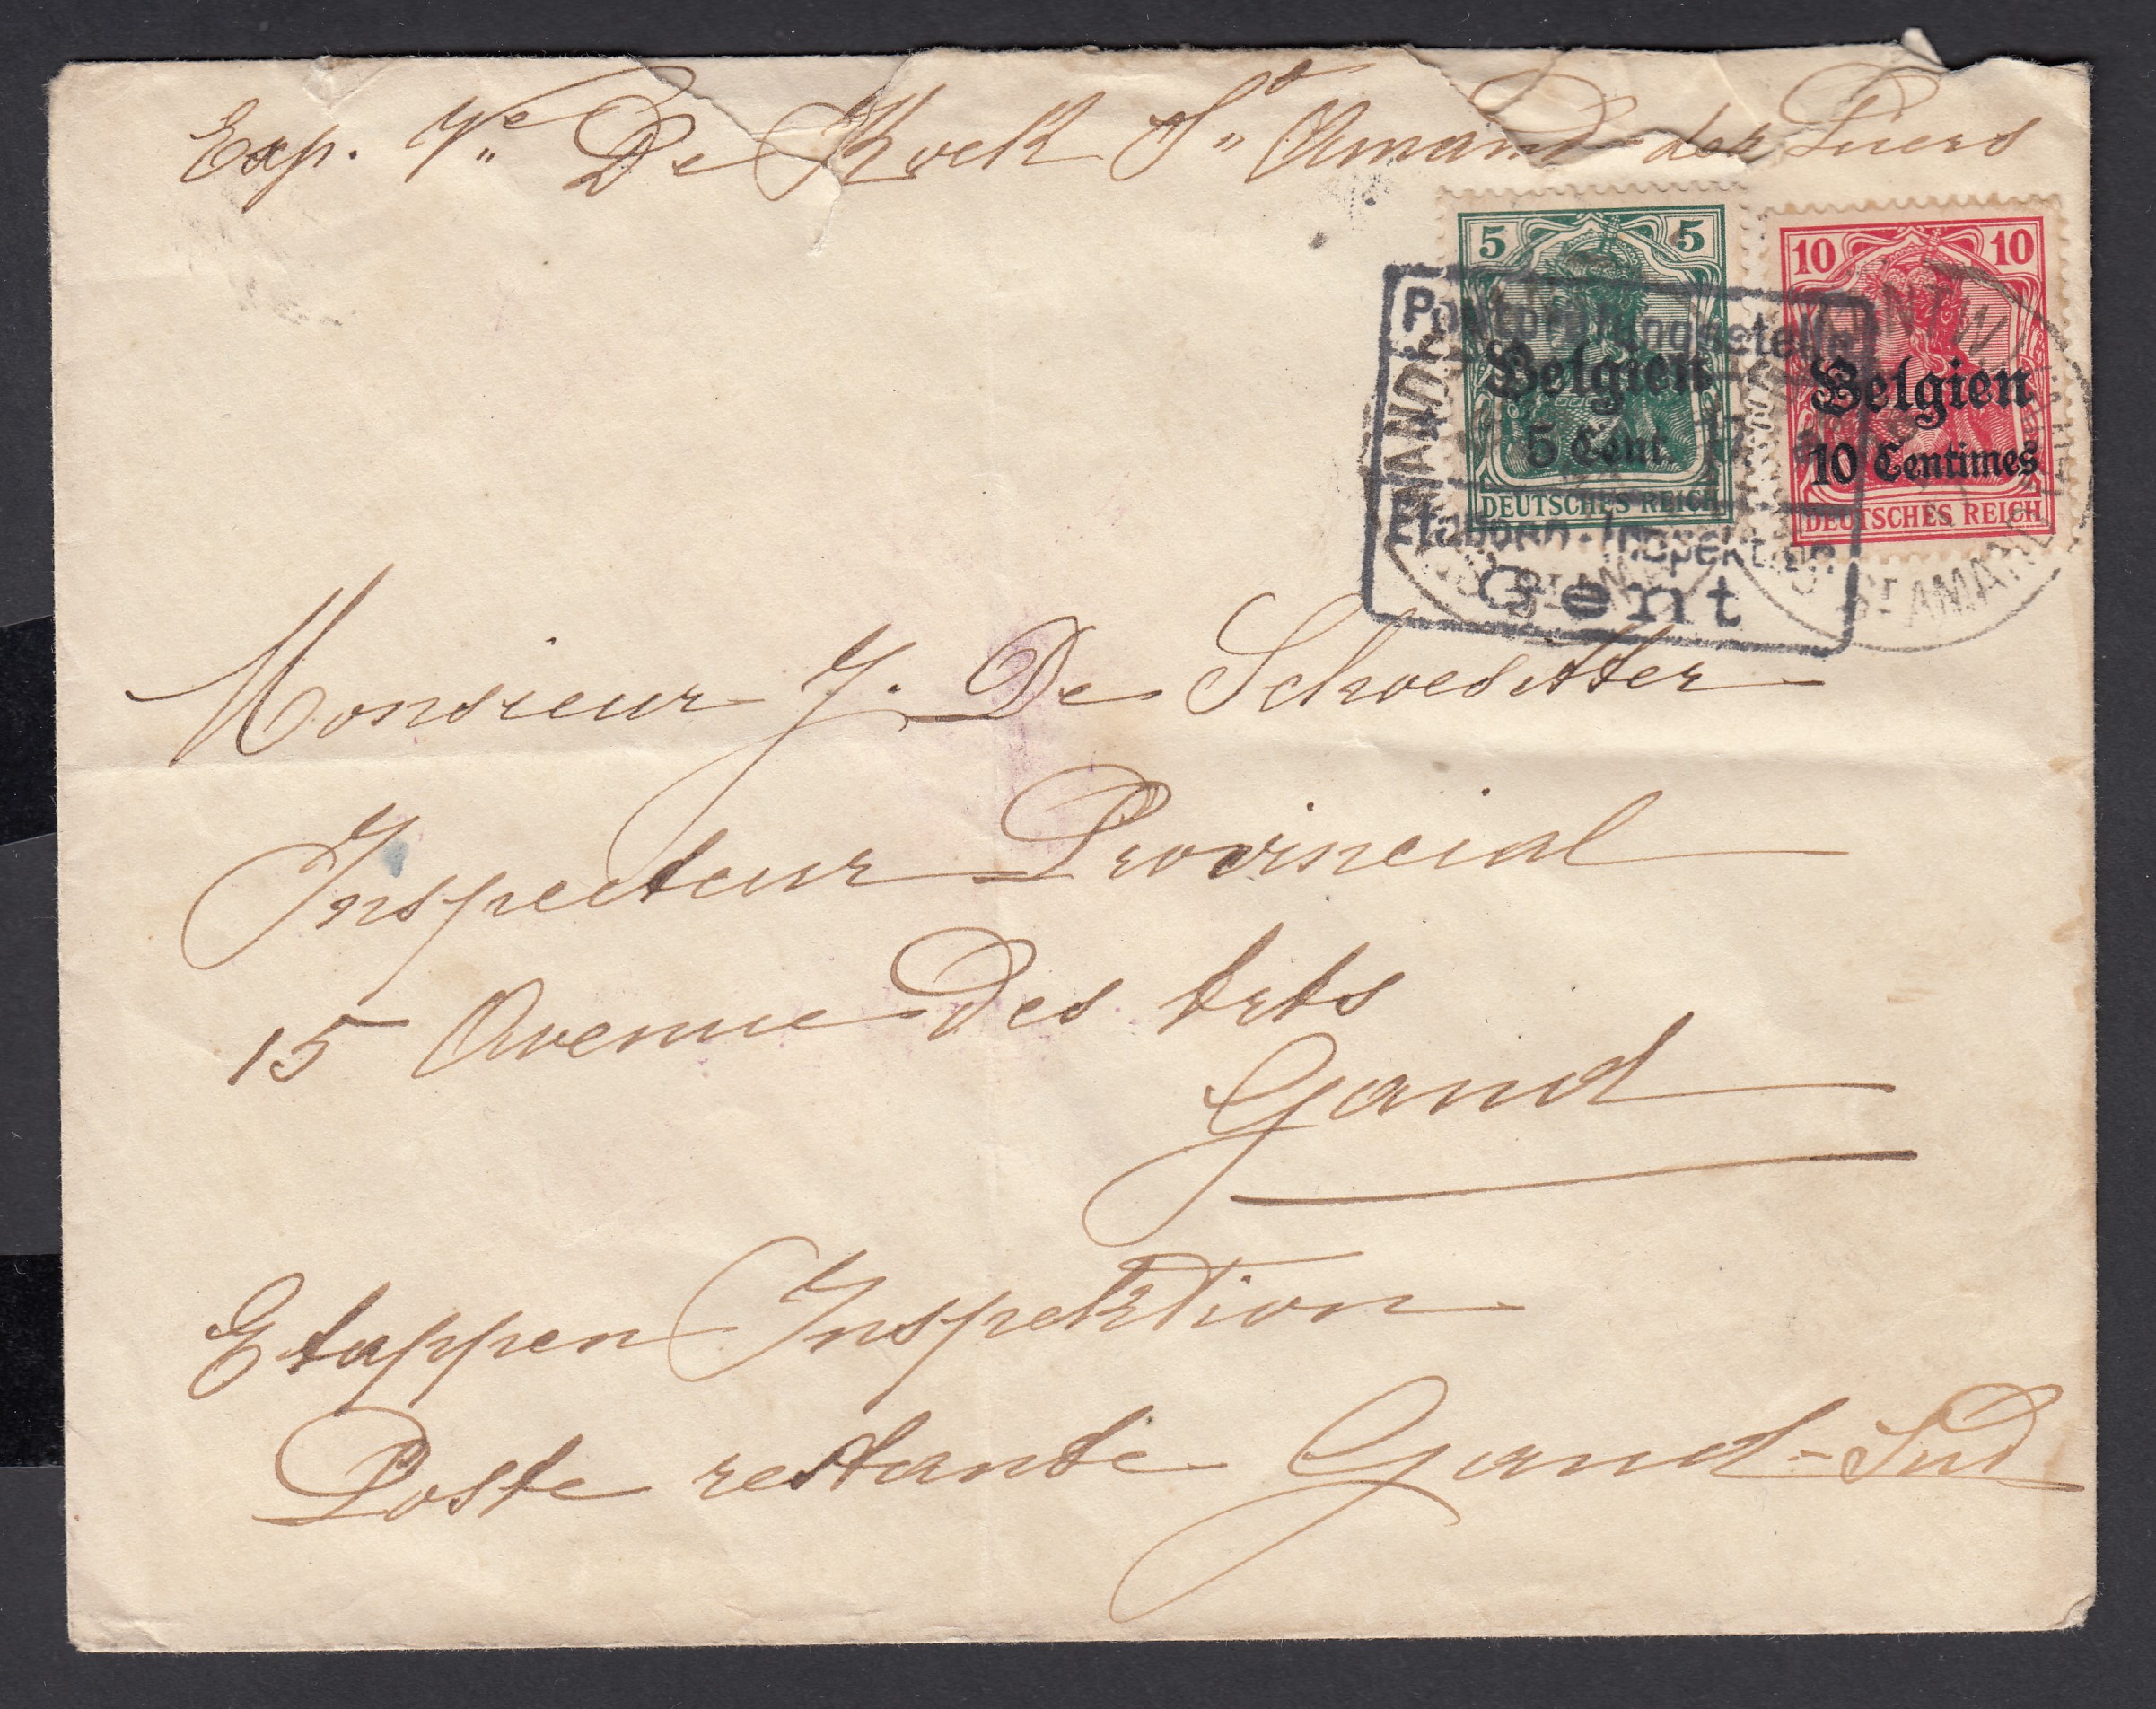 Exp. Ve De Kock St Amand-lez Puers
5 5
Belgien
5 Cent.
DEUTSCHES REICH
10 10
Belgien
10 Centimes
DEUTSCHES REICH
Etappen-Inspektion
Gent
St AMAND
Monsieur J. De
Inspecteur Provincial
15 Avenue des Arts
Gand
Etappen Inspektion
Poste restante Gand-Sud